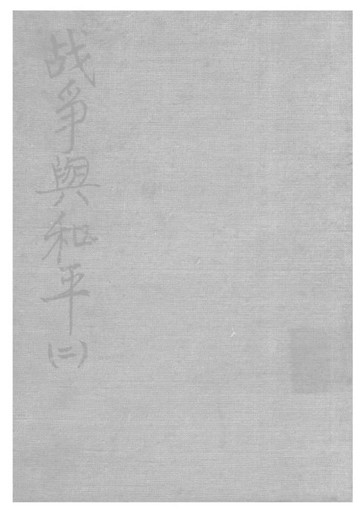 战爭與和平(二)